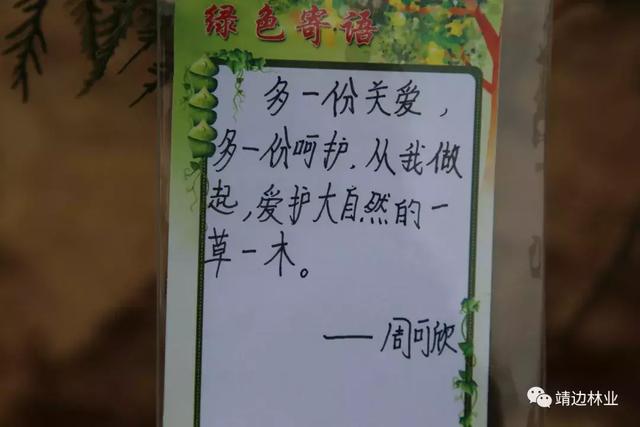 绿色寄语
多一份关爱，
多一份呵护，从我做
起，爱护大自然的一
草一木。
——周可欣
靖边林业